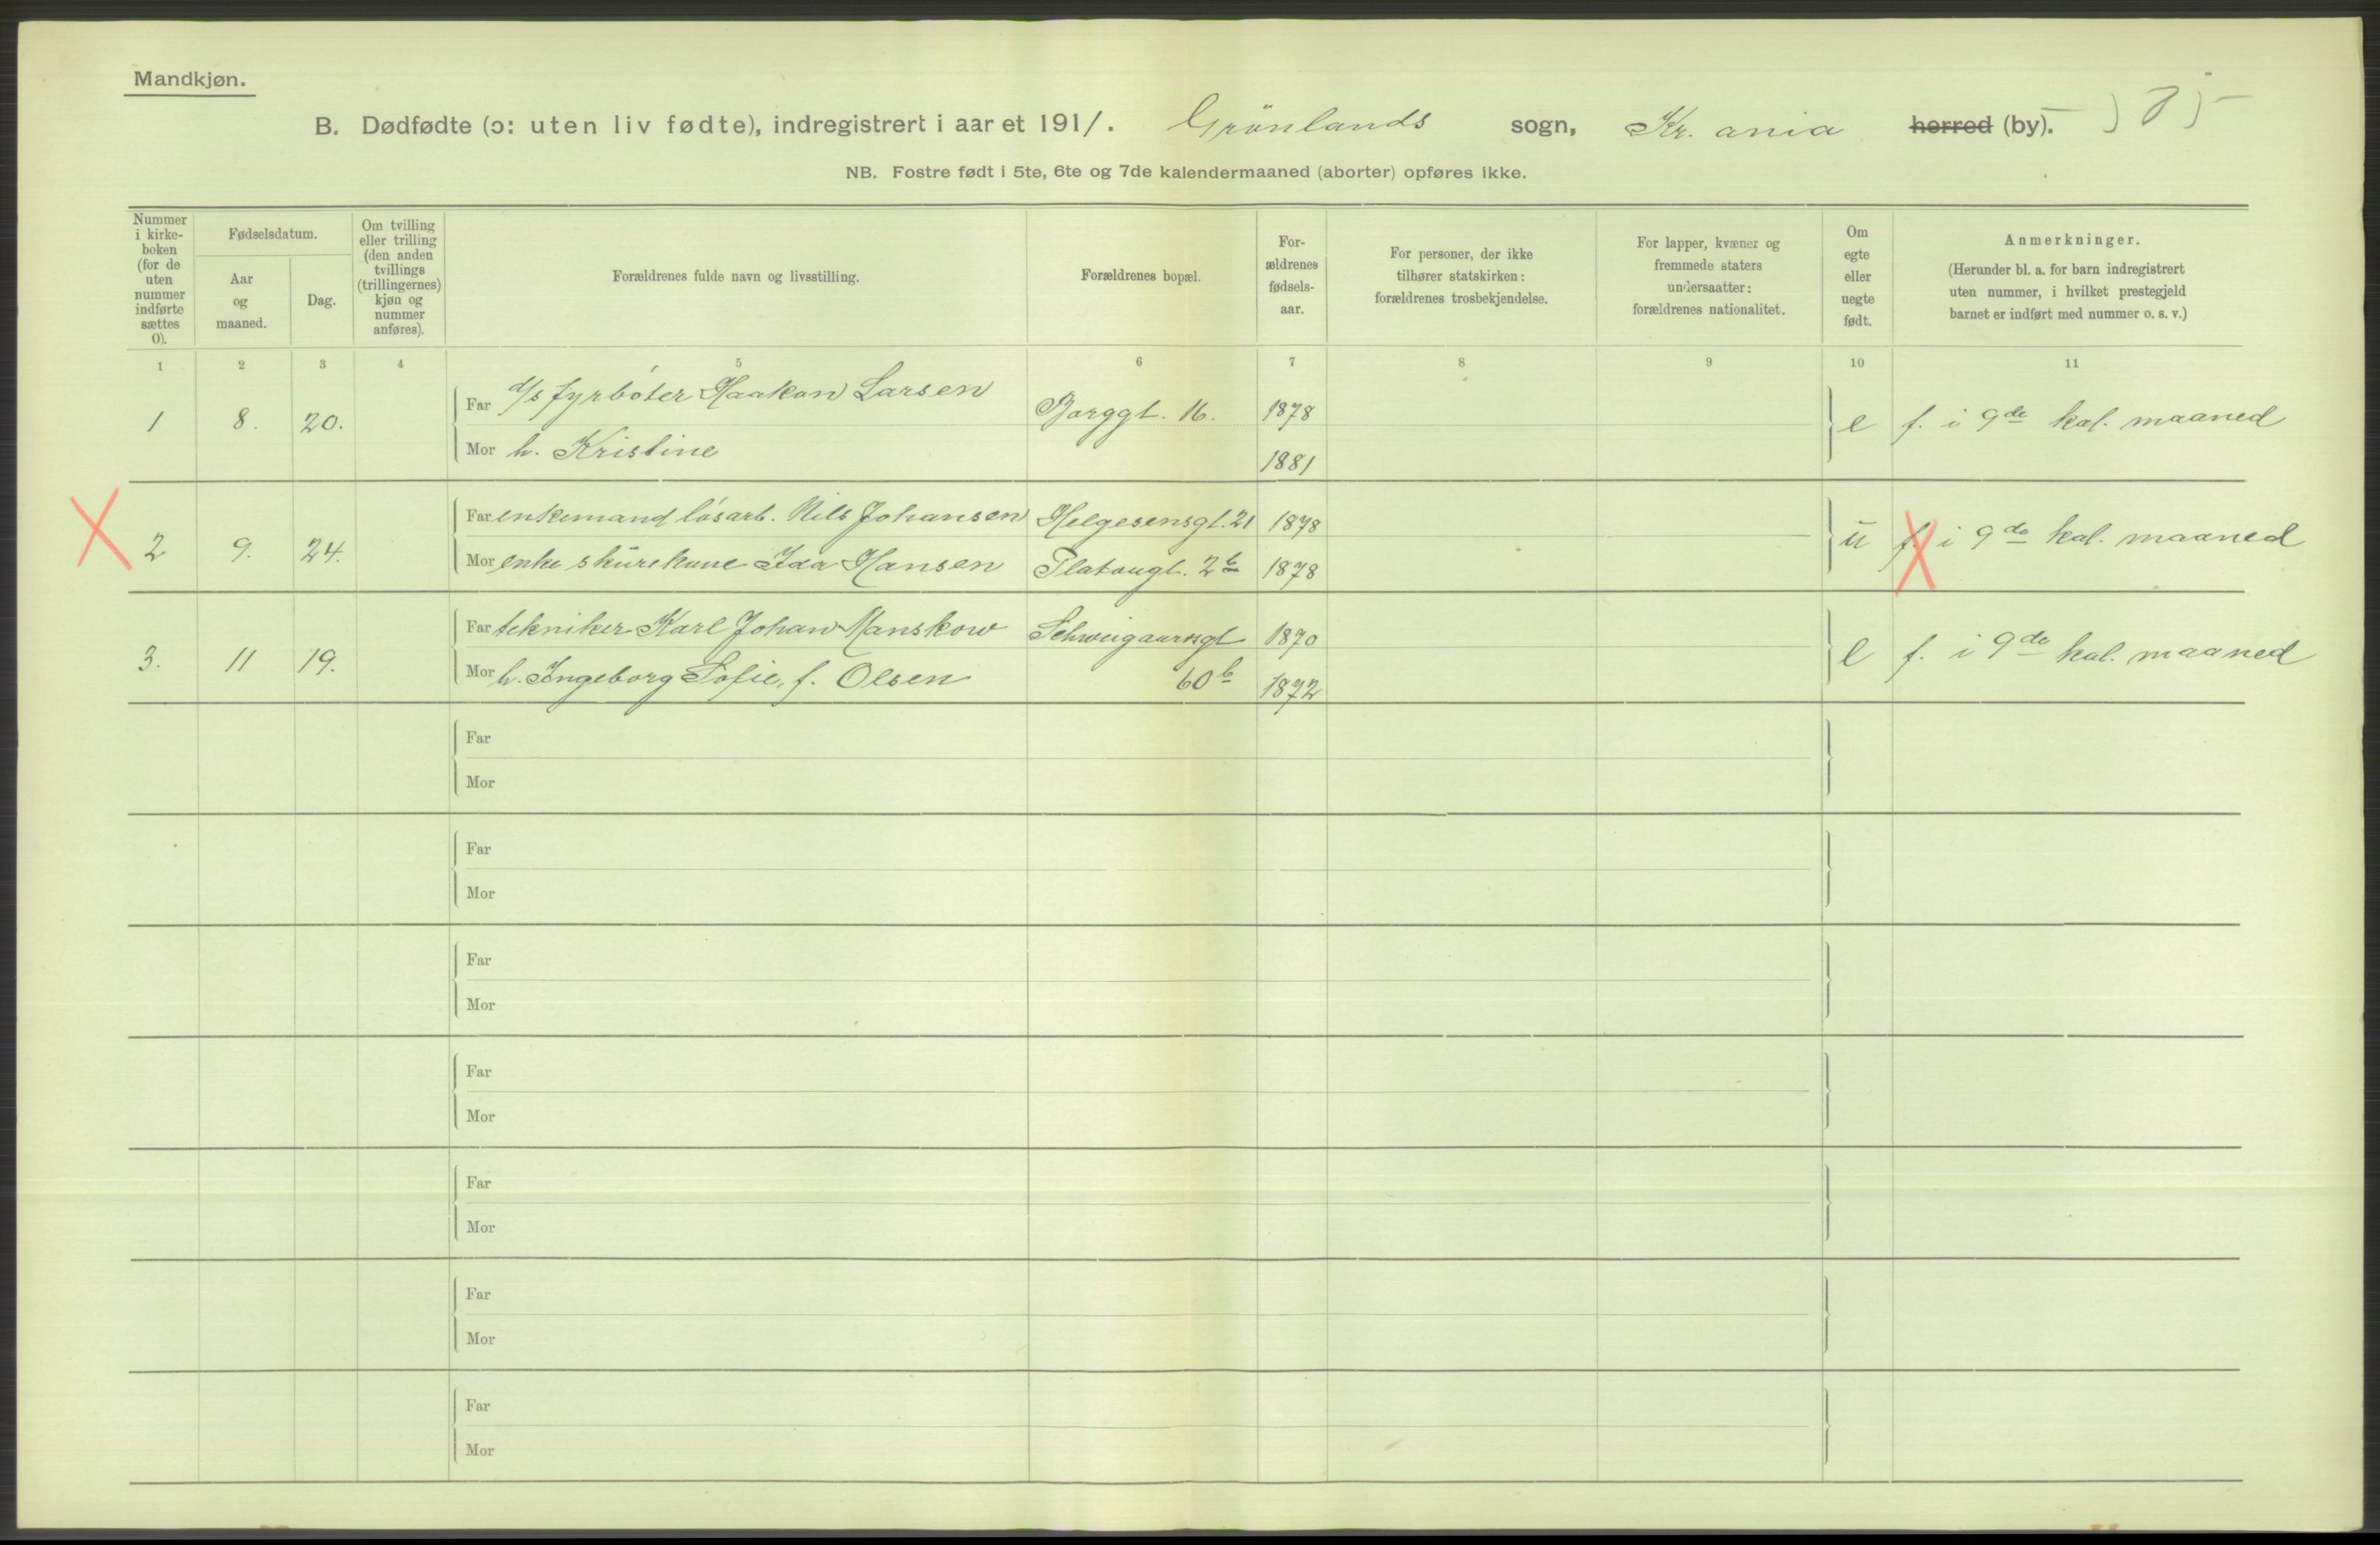 Mandkjøn.
B. Dødfødte (ɔ: uten liv fødte), indregistrert i aaret 1911. Grönlands sogn, Kr.ania herred (by).
NB. Fostre født i 5te, 6te og 7de kalendermaaned (aborter) opføres ikke.
Nummer i kirke-boken (for de uten nummer indførte sættes 0).
Fødselsdatum.
Aar og maaned.
Dag.
Om tvilling eller trilling (den anden tvillings (trillingernes) kjøn og nummer anføres).
Forældrenes fulde navn og livsstilling.
Forældrenes bopæl.
For-ældrenes fødsels-aar.
For personer, der ikke tilhører statskirken: forældrenes trosbekjendelse.
For lapper, kvæner og fremmede staters undersaatter: forældrenes nationalitet.
Om egte eller uegte født.
Anmerkninger.
(Herunder bl. a. for barn indregistrert uten nummer, i hvilket prestegjeld barnet er indført med nummer o. s. v.)
1 2 3 4 5 6 7 8 9 10 11
1 8. 20. Far d/s fyrböter Haakon Larsen Borggt. 16. 1878 e f. i 9de kal. maaned
Mor h. Kristine 1881
2 9. 24. Far enkemand løsarb. Nils Johansen Helgesensgt. 21 1878 u f. i 9de kal. maaned
Mor enke skurekone Ida Hansen Platougt. 2b 1878
3. 11 19. Far tekniker Karl Johan Manskow Schweigaardsgt 1870 e f. i 9de kal. maaned
Mor h. Ingeborg Sofie, f. Olsen 60b 1872
Far
Mor
Far
Mor
Far
Mor
Far
Mor
Far
Mor
Far
Mor
Far
Mor